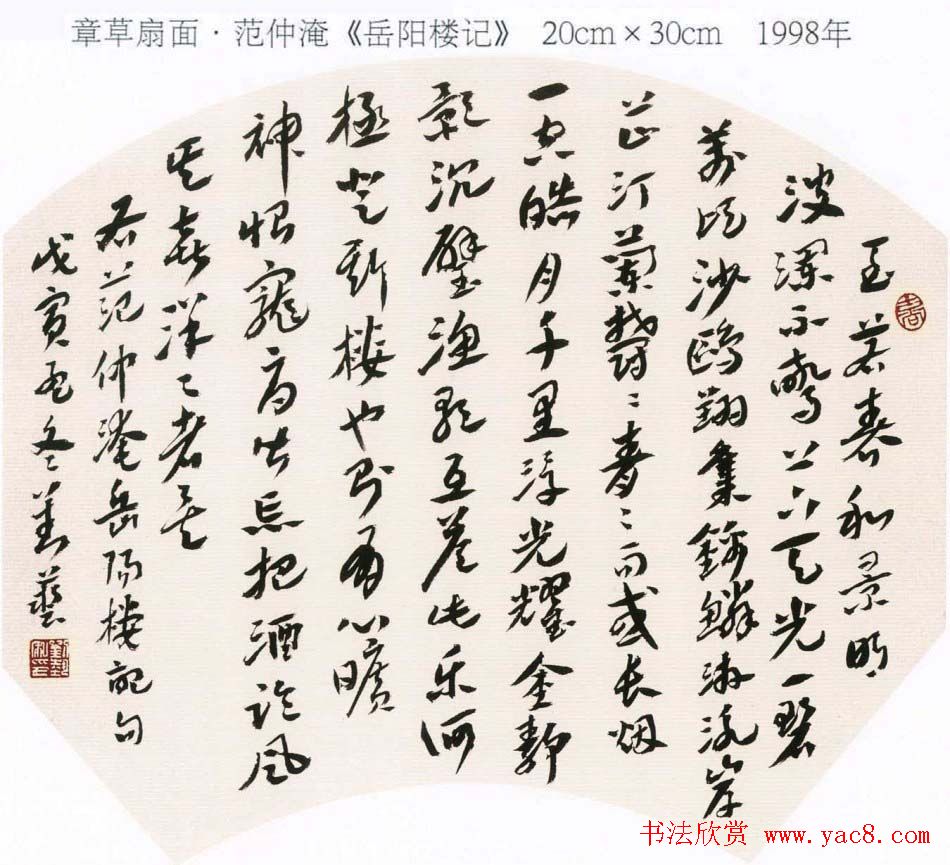 章草扇面·范仲淹《岳阳楼记》 20cm×30cm 1998年
至若春和景明
波瀾不驚上下天光一碧
萬頃沙鷗翔集錦鱗游泳岸
芷汀蘭鬱〻青〻而或长烟
一空皓月千里浮光耀金靜
影沉璧漁歌互答此乐何
極登斯樓也則有心曠
神怡寵辱皆忘把酒臨風
其喜洋〻者矣
右范仲淹岳陽樓記句
戊寅 冬 藝
书法欣赏 www.yac8.com